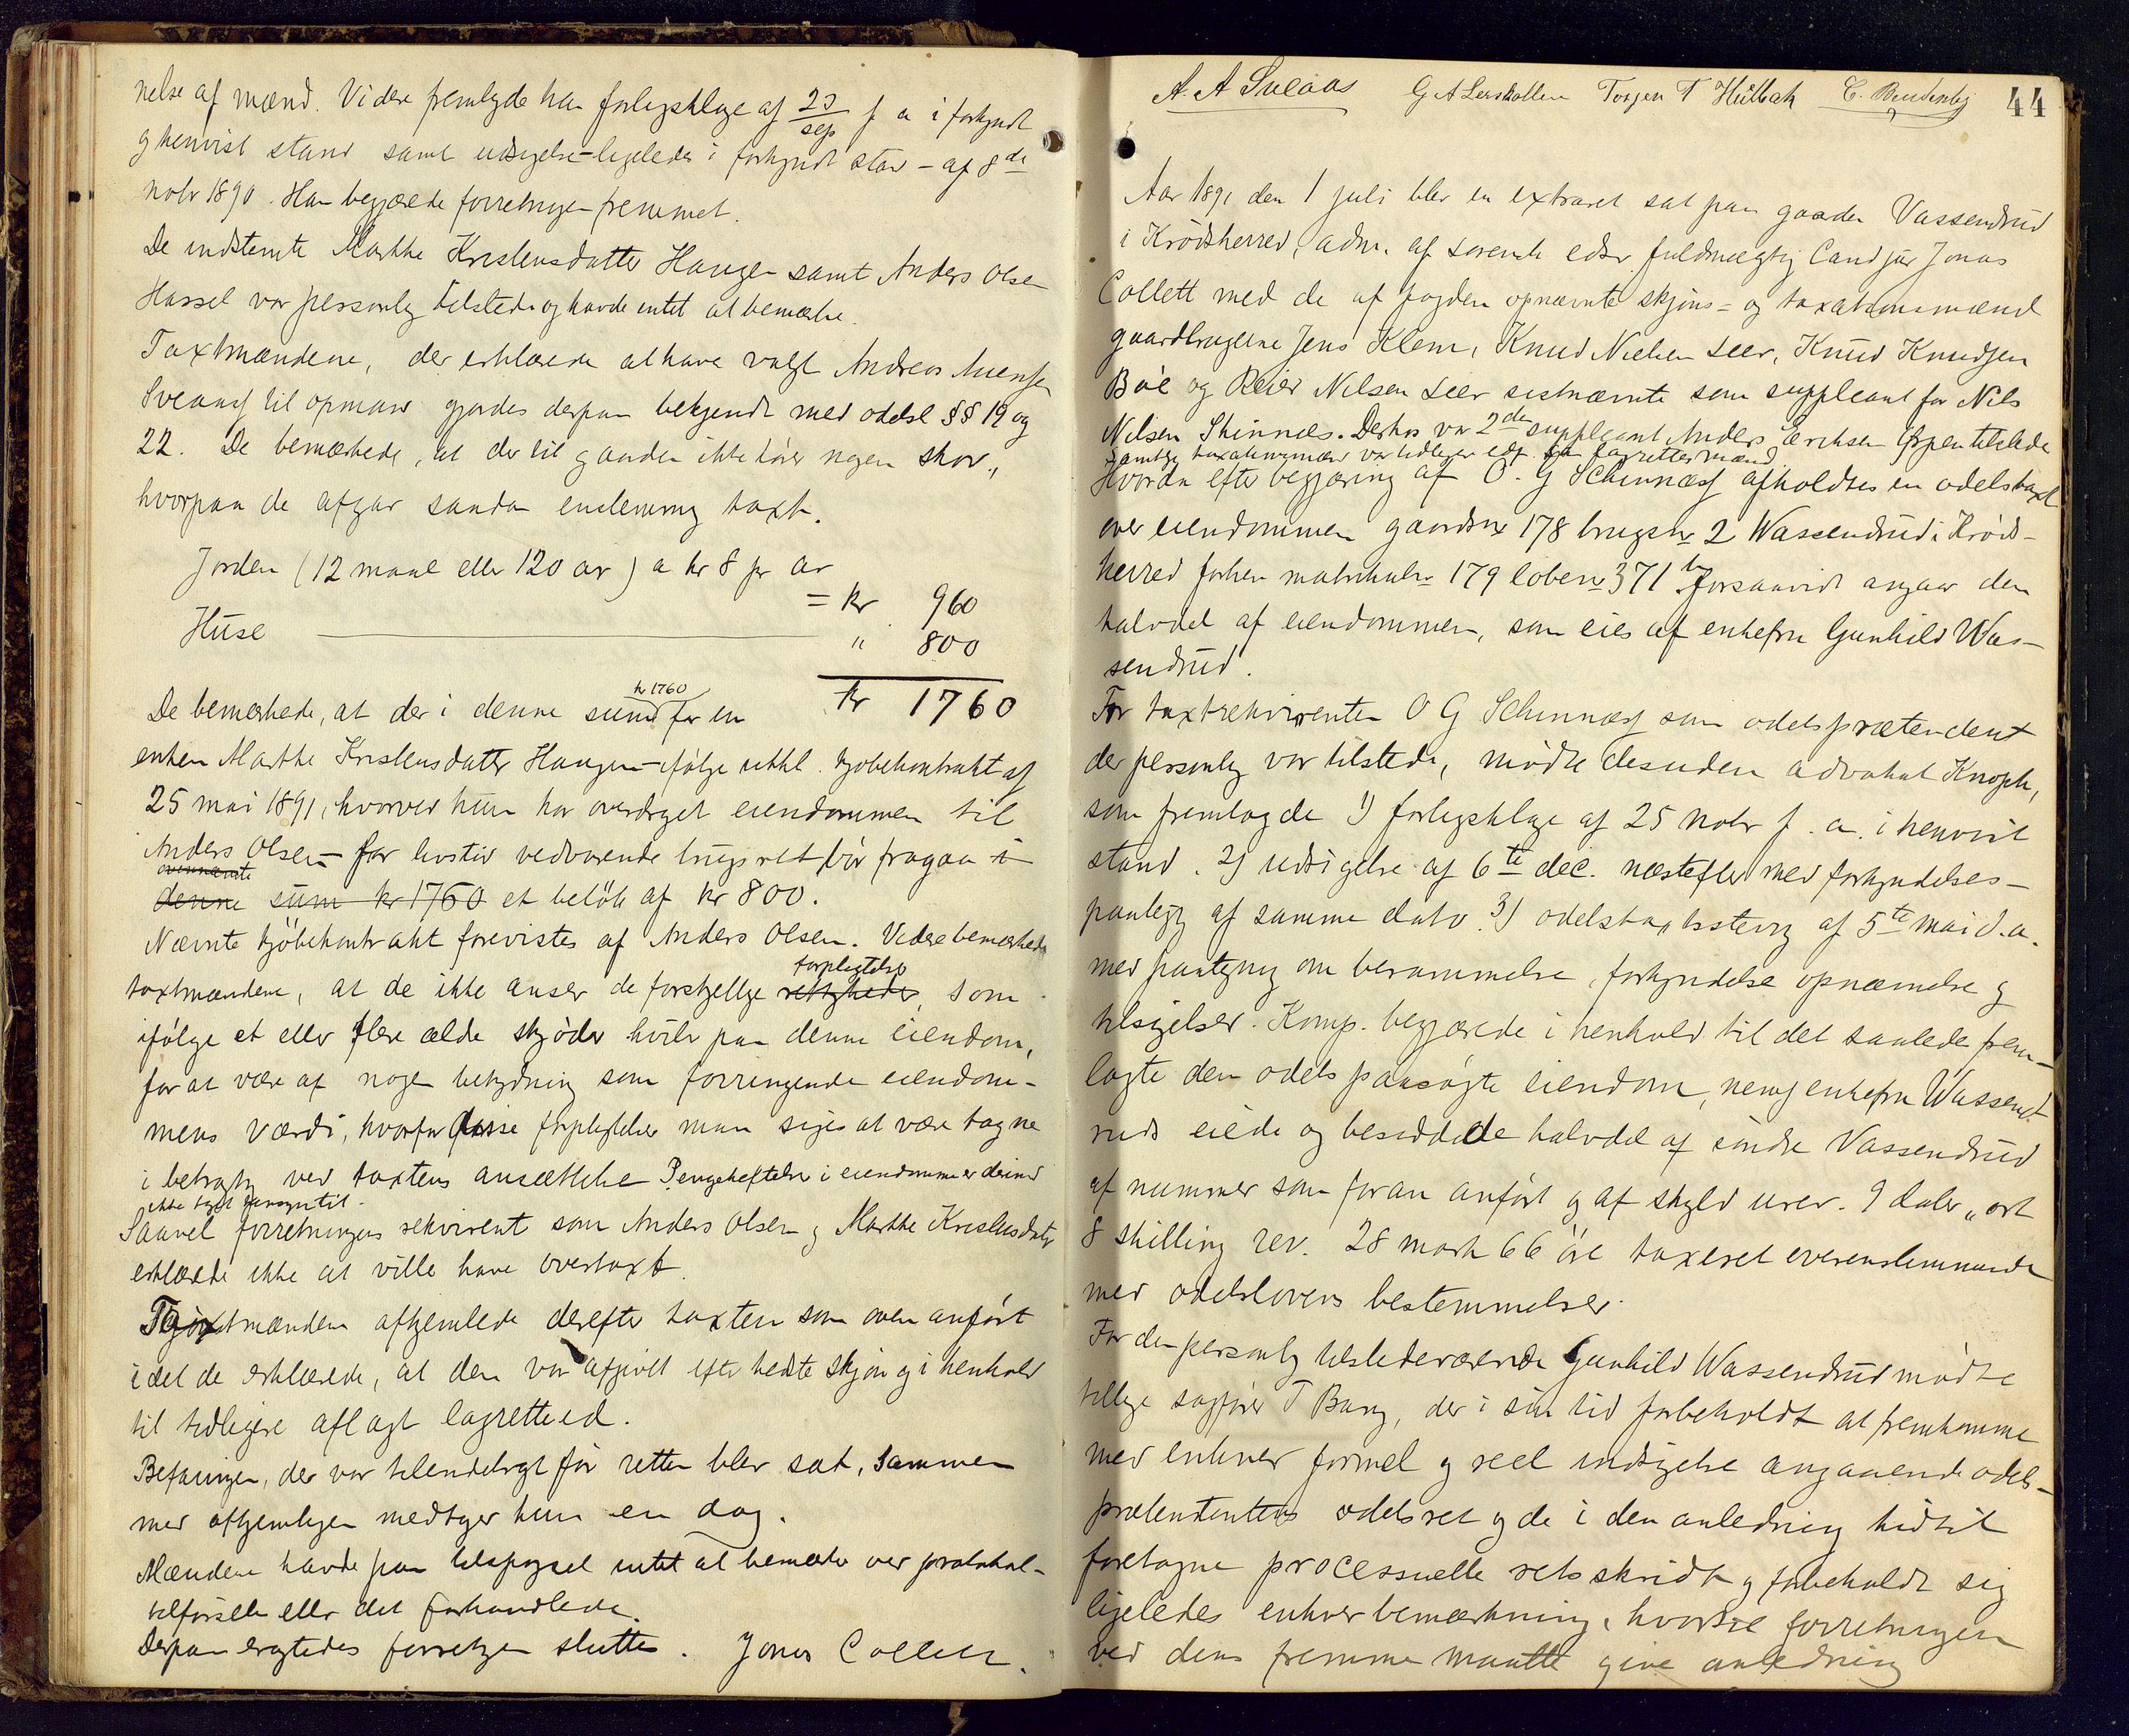 nelse af mænd. Videre fremlagde han forligsklage af 23/sep f a i forkyndt
og henvist stand samt udsigelse - ligeledes i forkyndt stand - af 8de
novbr 1890. Han begjærede forretningen fremmet.
De indstevnte Marthe Kristensdatter Haugen samt Anders Olsen
Hassel var personlig tilstede og havde intet at bemærke.
Taxtmændene, der erklærede at have valgt Andreas
Sveaas til opmand gjordes derpaa bekjendt med odelsl §§ 19 og
22. De bemærkede, at der til gaarden ikke hører nogen skov,
hvorpaa de afgav saadan enstemmig taxt.
Jorden (12 maal eller 120 ar) a kr 8 pr ar
= kr 960
Huse " 800
kr 1760
De bemærkede, at der i denne sum kr 1760 for en
enken Marthe Kristensdatter Haugen - ifølge kjøbekontrakt af
25 mai 1891, hvorved hun har overdraget eiendommen til
Anders Olsen - for livstid vedvarende brugsret bør fragaa i
ovennævnte
denne sum kr 1760 et beløb af kr 800.
Nævnte kjøbekontrakt forevistes af Anders Olsen. Videre bemærkede
taxtmændene, at de ikke anser de forskjellige rettigheder forpligtelser, som
ifølge et eller flere ældre skjøder hviler paa denne eiendom,
for at være af nogen betydning som forringende eiendom-
mens værdi, hvorfor disse forpligtelser maa siges at være tagne
i betragtn ved taxtens ansættelse Pengeheftelser i eiendommen er derimod
ikke taget hensyn til.
Saavel forretningens rekvirent som Anders Olsen og Marthe Kristensdatter
erklærede ikke at ville have overtaxt.
Taxtmændene afhjemlede derefter taxten som oven anført
idet de erklærede, at den var afgivet efter bedste skjøn og i henhold
til tidligere aflagt lagretteed.
Befaringen, der var tilendebragt før retten blev sat, sammen
med afhjemlingen medtager kun en dag.
Mændene havde paa tilspørgsel intet at bemærke ved protokol-
tilførselen eller det forhandlede.
Derpaa eragtedes forretningen sluttet. Jonas Collett.
A. A Sveaas G A Lerskallen Torgen T Hulbak C.
44
Aar 1891 den 1 juli blev en extraret sat paa gaarden Vassendrud
i Krødsherred, adm. af sorensk edsv. fuldmægtig Cand jur Jonas
Collett med de af fogden opnævnte skjøns- og taxationsmænd
gaardbrugerne Jens Klem, Knud Nielsen Leer, Knud Knudsen
Bøe og Reier Nilsen Leer sistnævnte som suppleant for Nils
Nilsen Skinnes. Derhos var 2den suppleant Anders Erichsen tilstede
samtlige taxationsmænd var tidligere edf. som lagrettesmænd
Hvorda efter begjæring af O. G Schinnæss afholdtes en odelstaxt
over eiendommen gaardsnr 178 brugsnr 2 Wassendrud i Krøds-
herred forhen matrikulnr 179 løbenr 371 b forsaavidt angaar den
halvdel af eiendommen, som eies af enkefru Gunhild Was-
sendrud.
For taxtrekvirenten O G Schinnæss som odelsprætendent
der personlig var tilstede, mødte desuden advokat Knoph,
som fremlagde 1) forligsklage af 25 Novbr f. a. i henvist
stand. 2) udsigelse af 6te dec. næstefter med forkyndelses-
paategn af samme dato. 3) odelstaxtstevning af 5te mai d.a.
med paategning om berammelse, forkyndelse opnævnelse og
tilsigelser. Komp. begjærede i henhold til det saaledes frem-
lagte den odelspaasøgte eiendom, nemlig enkefru Wassend-
ruds eiede og besiddede halvdel af søndre Vassendrud
af nummer som foran anført og af skyld urev. 9 daler „ ort
8 skilling rev. 28 mark 66 øre taxeret overensstemmende
med odelslovens bestemmelser.
For den personlig tilstedeværende Gunhild Wassendrud mødte
tillige sagfører T Bang, der i sin tid forbeholdt at fremkomme
med enhver formel og reel indsigelse angaaende odels-
prætendentens odelsret og de i den anledning hidtil
foretagne processuelle retsskridt og forbeholdt sig
ligeledes enhver bemærkning, hvortil forretningen
ved dens fremme maatte give anledning